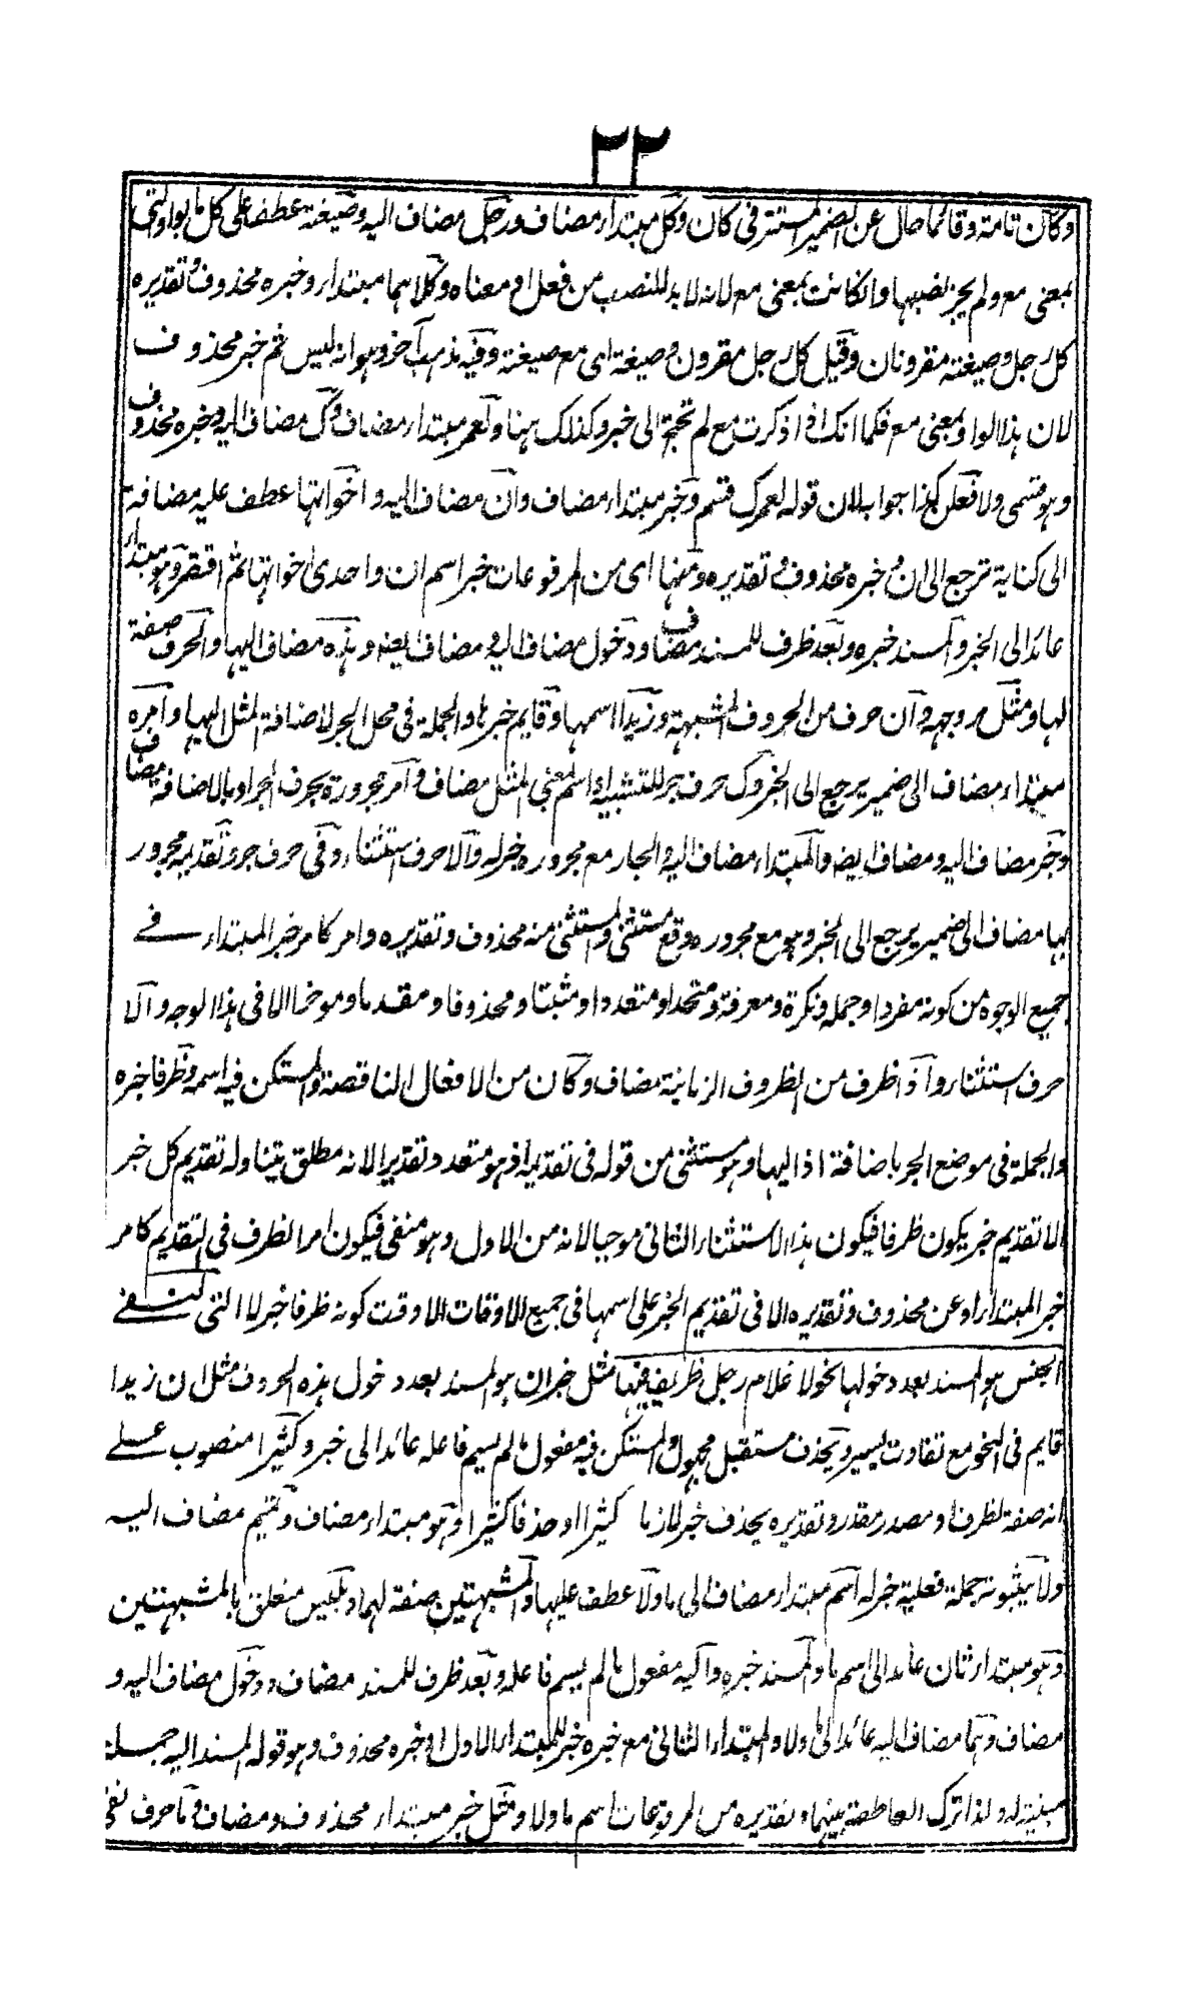 ٢٢
وكان تامة وقائما حال عن الضمير المستتر فى كان وكل مبتداء مضاف ورجل مضاف اليه وضيعته عطف على كل بالواو التى
بمعنى مع ولم يجز نصبها وان كانت بمعنى مع لانه لابد للنصب من فعل او معناه وكلاهما مبتداء وخبره محذوف وتقديره
كل رجل وضيعته مقرونان وقيل كل رجل مقرون وضيعته اى مع ضيعته وفيه مذهب آخر وهو انه ليس ثم خبر محذوف
لان هذا الواو بمعنى مع فكما انك اذا ذكرت مع لم تحتج الى خبر وكذلك هنا ولعمر مبتداء مضاف وك مضاف اليه وخبره محذوف
وهو قسمى ولافعلن كذا جواب لان قوله لعمرك قسم وخبر مبتداء مضاف وان مضاف اليه واخواتها عطف عليه مضافة
الى كناية ترجع الى ان وخبره محذوف وتقديره ومنها اى من المرفوعات خبر اسم ان واحدى اخواتها ثم وهو مبتداء
عائد الى الخبر والمسند خبره وبعد ظرف للمسند مضاف ودخول مضاف اليه ومضاف ايضا وهذه مضاف اليها والحروف صفة
لها ومثل مر وجهه وان حرف من الحروف المشبهة وزيدا اسمها وقايم خبرها والجملة فى محل الجر لاضافة المثل اليها وامره
مبتداء مضاف الى ضمير يرجع الى الخبر وك حرف جر للتشبيه او اسم بمعنى المثل مضاف وامر مجرورة بحرف الجر او بالاضافة مضاف
وخبر مضاف اليه ومضاف ايضا والمبتداء مضاف اليه والجار مع مجروره خبر له والا حرف استثناء وفى حرف جر وتقديمه مجرور
بها مضاف الى ضمير يرجع الى الخبر وهو مع مجروره وقع مستثنى والمستثنى منه محذوف وتقديره وامره كامر خبر المبتداء فے
جميع الوجوه من كونه مفردا وجملة ونكرة ومعرفة ومتحدا ومتعددا ومثبتا ومحذوفا ومقدما وموخرا الا فى هذا الوجه والا
حرف استثناء واذا ظرف من الظروف الزمانية مضاف وكان من الافعال الناقصة والمستكن فيه اسمه وظرفا خبره
والجملة فى موضع الجر باضافة اذا اليها وهو مستثنى من قوله فى تقديمه اذ هو متعدد تقديرا لانه مطلق يتناول تقديم كل خبر
الا تقديم خبر يكون ظرفا فيكون هذا الاستثناء الثانى موجبا لانه من الاول وهو منفى فيكون امر الظرف فى التقديم كامر
خبر المبتداء او عن محذوف وتقديره الا فى تقديم الخبر على اسمها فى جميع الاوقات الا وقت كونه ظرفا خبر لا التى لنفے
الجنس هو المسند بعد دخولها نحو لا غلام رجل ظريف فيها مثل خبر ان هو المسند بعد دخول هذه الحروف مثل ان زيدا
قايم فى النحو مع تفاوت يسير ويحذف مستقبل مجهول والمستكن فيه مفعول مالم يسم فاعله عائد الى خبر وكثيرا منصوب علے
انه صفة لظرف او مصدر مقدر وتقديره يحذف خبر لا زمانا كثيرا او حذفا كثيرا وهو مبتداء مضاف وتميم مضاف اليه
ولا يثبتونه جملة فعلية خبر له اسم مبتداء مضاف الى ما ولا عطف عليها والمشبهتين صفة لهما وبليس متعلق بالمشبهتين
وهو مبتداء ثان عائد الى اسم ما والمسند خبره واليه مفعول مالم يسم فاعله وبعد ظرف للمسند مضاف ودخول مضاف اليه و
مضاف وهما مضاف اليه عائد الى ما ولا والمبتداء الثانى مع خبره خبر للمبتداء الاول او خبره محذوف وهو قوله المسند اليه جملة
مبنية له ولذا ترك العاطفة بينهما وتقديره من المرفوعات اسم ما ولا ومثل خبر مبتداء محذوف ومضاف وما حرف نفى